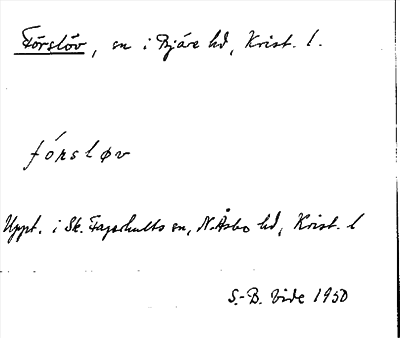 Förslöv, sn i Bjäre hd, Krist. l.
fórsløv
Uppt. i Sk. Fagerhults sn, N. Åsbo hd, Krist. l
S.-B. Vide 1950